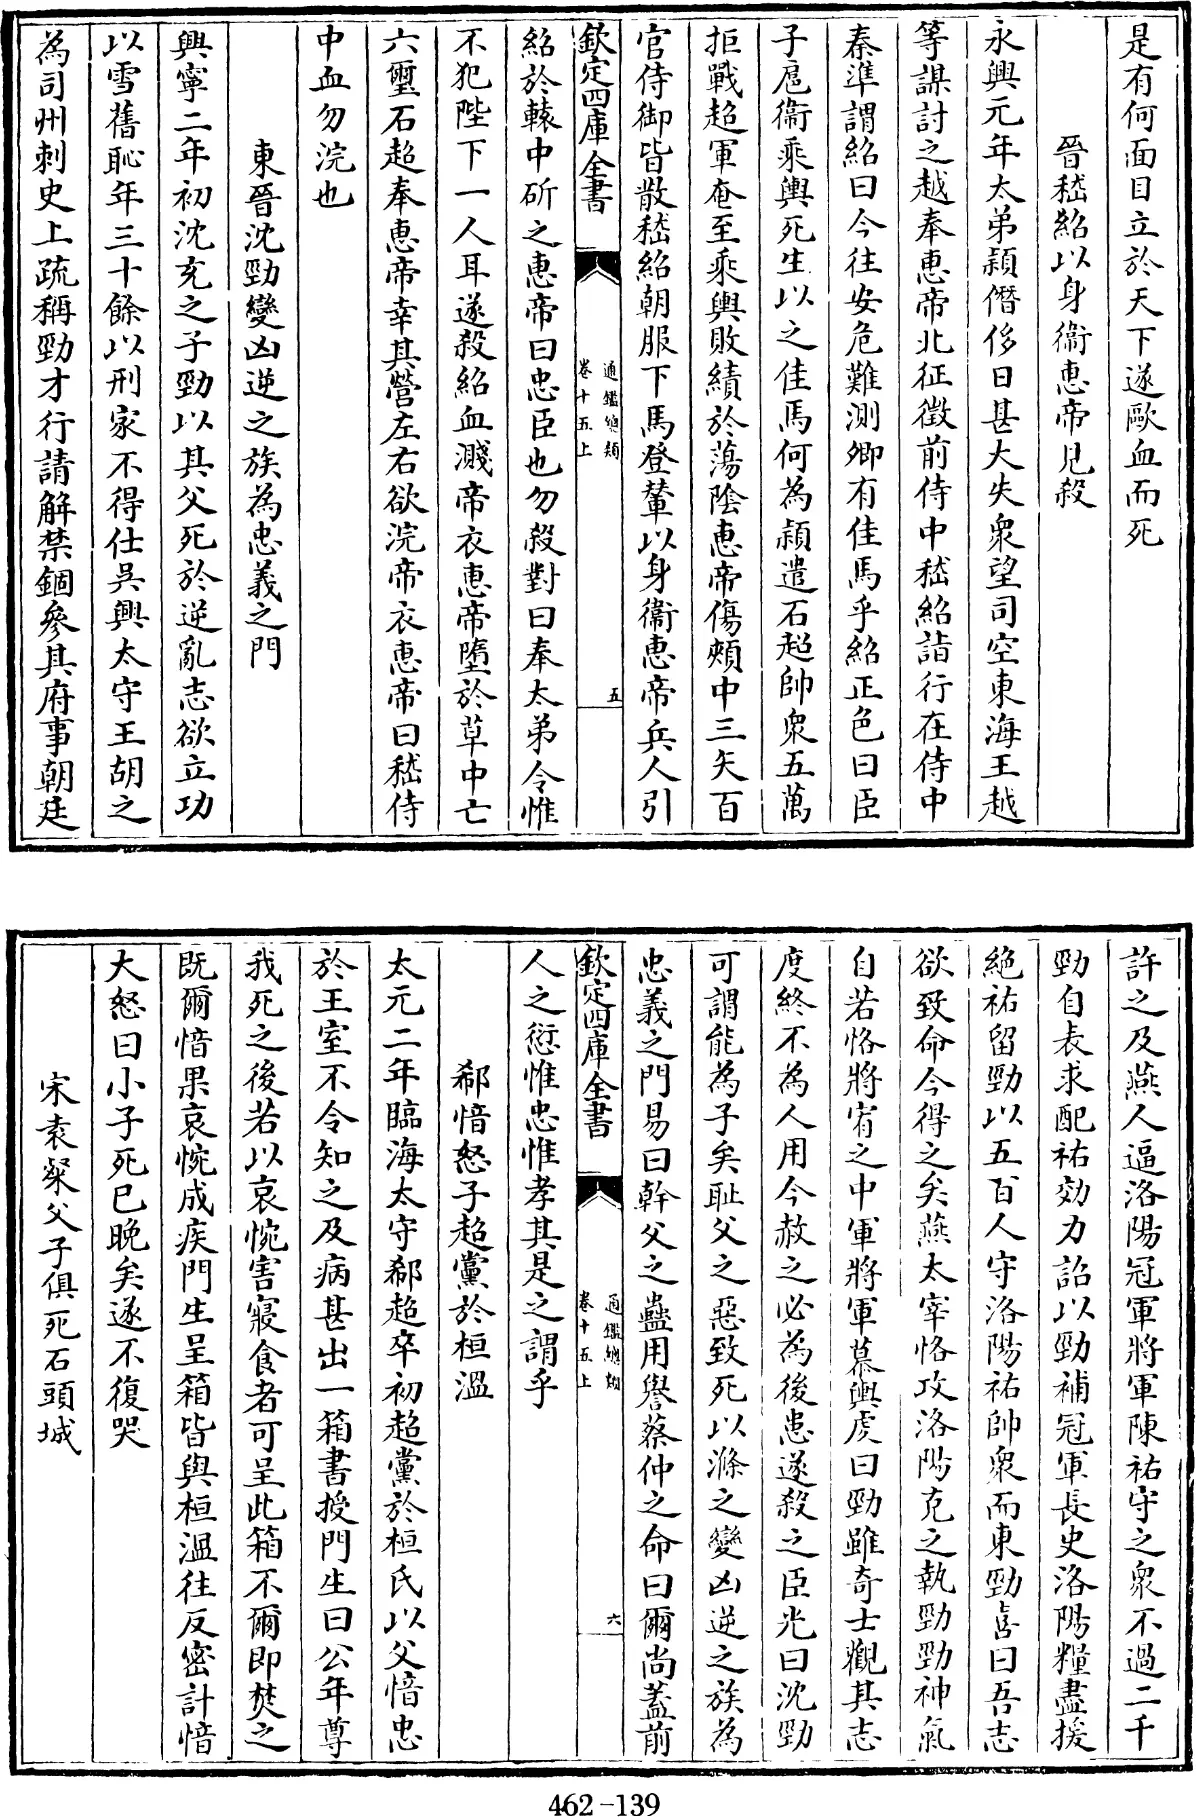 是有何面目立於天下遂歐血而死
晉嵇紹以身衞惠帝見殺
永興元年太弟穎僭侈日甚大失衆望司空東海王越
等謀討之越奉惠帝北征徵前侍中嵇紹詣行在侍中
秦準謂紹曰今往安危難測卿有佳馬乎紹正色曰臣
子扈衞乘輿死生以之佳馬何為穎遣石超帥衆五萬
拒戰超軍奄至乘輿敗績於蕩隂惠帝傷頰中三矢百
官侍御皆散嵇紹朝服下馬登輦以身衞惠帝兵人引
欽定四庫全書
通鑑總類
卷十五上
五
紹於轅中斫之惠帝曰忠臣也勿殺對曰奉太弟令惟
不犯陛下一人耳遂殺紹血濺帝衣惠帝墮於草中亡
六璽石超奉惠帝幸其營左右欲浣帝衣惠帝曰嵇侍
中血勿浣也
東晉沈勁變凶逆之族為忠義之門
興寧二年初沈充之子勁以其父死於逆亂志欲立功
以雪舊恥年三十餘以刑家不得仕吳興太守王胡之
為司州刺史上疏稱勁才行請解禁錮參其府事朝廷
許之及燕人逼洛陽冠軍將軍陳祐守之衆不過二千
勁自表求配祐効力詔以勁補冠軍長史洛陽糧盡援
絶祐留勁以五百人守洛陽祐帥衆而東勁喜曰吾志
欲致命今得之矣燕太宰恪攻洛陽克之執勁勁神氣
自若恪將宥之中軍將軍慕輿虔曰勁雖奇士觀其志
度終不為人用今赦之必為後患遂殺之臣光曰沈勁
可謂能為子矣耻父之惡致死以滌之變凶逆之族為
忠義之門易曰幹父之蠱用譽蔡仲之命曰爾尚蓋前
欽定四庫全書
通鑑總類
卷十五上
六
人之愆惟忠惟孝其是之謂乎
郗愔怒子超黨於桓溫
太元二年臨海太守郗超卒初超黨於桓氏以父愔忠
於王室不令知之及病甚出一箱書授門生曰公年尊
我死之後若以哀惋害寢食者可呈此箱不爾即焚之
既爾愔果哀惋成疾門生呈箱皆與桓溫往反密計愔
大怒曰小子死已晚矣遂不復哭
宋袁粲父子俱死石頭城
462-139